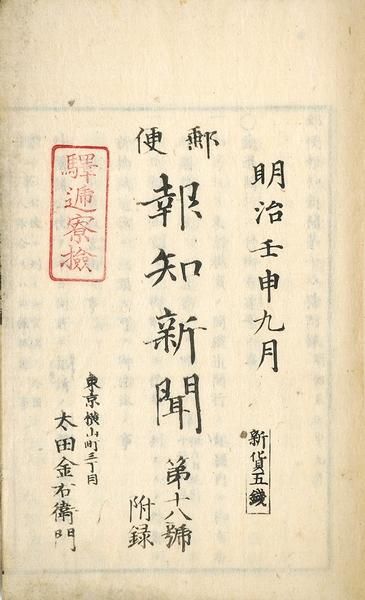 明治壬申九月
新貨五錢
郵便
報知新聞
第十八號
附録
驛逓寮檢
東京横山町三丁目
太田金右衛門